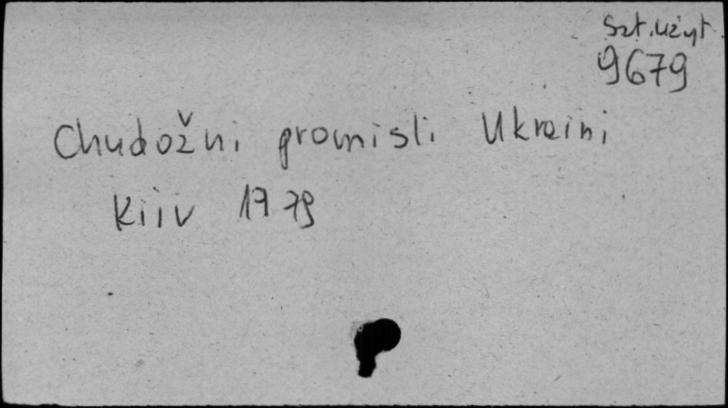 Szt. użyt.
9679
Chudožni promisli Ukraini
Kiiv 1979